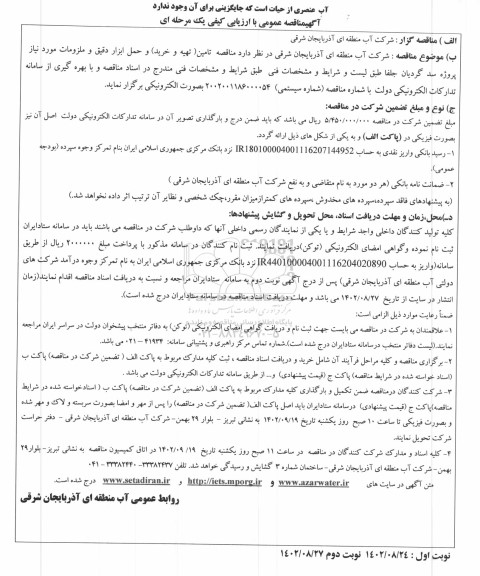 آب عنصری از حیات است که جایگزینی برای آن وجود ندارد
آگهیمناقصه عمومی با ارزیابی کیفی یک مرحله ای
الف ) مناقصه گزار : شرکت آب منطقه ای آذربایجان شرقی
ب) موضوع مناقصه : شرکت آب منطقه ای آذربایجان شرقی در نظر دارد مناقصه تامین( تهیه و خرید) و حمل ابزار دقیق و ملزومات مورد نیاز
پروژه سد گردیان جلفا طبق لیست و شرایط و مشخصات فنی طبق شرایط و مشخصات فنی مندرج در اسناد مناقصه و با بهره گیری از سامانه
تدارکات الکترونیکی دولت با شماره مناقصه (شماره سیستمی) ۲۰۰۲۰۰۱۱۸۶۰۰۰۰۵۴ بصورت الکترونیکی برگزار نماید.
ج) نوع و مبلغ تضمین شرکت در مناقصه:
مبلغ تضمین شرکت در مناقصه ۵/۴۵۰/۰۰۰/۰۰۰ ریال می باشد که باید ضمن درج و بارگذاری تصویر آن در سامانه تدارکات الکترونیکی دولت اصل آن نیز
بصورت فیزیکی در (پاکت الف) و به یکی از شکل های ذیل ارائه گردد.
۱- رسید بانکی واریز نقدی به حساب IR180100004001116207144952 نزد بانک مرکزی جمهوری اسلامی ایران بنام تمرکز وجوه سپرده (بودجه
عمومی).
۲- ضمانت نامه بانکی (هر دو مورد به نام متقاضی و به نفع شرکت آب منطقه ای آذربایجان شرقی )
(به پیشنهادهای فاقد سپرده،سپرده های مخدوش،سپرده های کمترازمیزان مقرر،چک شخصی و نظایر آن ترتیب اثر داده نخواهد شد.)
د)محل،زمان و مهلت دریافت اسناد، محل تحویل و گشایش پیشنهادها:
کلیه تولید کنندگان داخلی واجد شرایط و یا یکی از نمایندگان رسمی داخلی آنها که داوطلب شرکت در مناقصه می باشند باید در سامانه ستادایران
ثبت نام نموده وگواهی امضای الکترونیکی (توکن)دریافت نمایند. ثبت نام کنندگان در سامانه مذکور با پرداخت مبلغ ۲۰۰۰۰۰۰ ریال از طریق
سامانه(واریز به حساب IR440100004001116204020890 نزد بانک مرکزی جمهوری اسلامی ایران به نام تمرکز وجوه درآمد شرکت های
دولتی آب منطقه ای آذربایجان شرقی) پس از درج آگهی نوبت دوم به سامانه ستادایران مراجعه و نسبت به دریافت اسناد مناقصه اقدام نمایند(زمان
انتشار در سایت از تاریخ ۱۴۰۲/۰۸/۲۷ می باشد و مهلت دریافت اسناد مناقصه در سامانه ستادایران درج شده است).
ضمناً رعایت موارد ذیل الزامی است:
۱- علاقمندان به شرکت در مناقصه می بایست جهت ثبت نام و دریافت گواهی امضای الکترونیکی (توکن) به دفاتر منتخب پیشخوان دولت در سراسر ایران مراجعه
نمایند.(لیست دفاتر منتخب درسامانه ستادایران درج شده است).شماره تماس مرکز راهبری و پشتیبانی سامانه: ۴۱۹۳۴ – ۰۲۱ می باشد.
۲- برگزاری مناقصه و کلیه مراحل فرآیند آن شامل خرید و دریافت اسناد مناقصه ، ثبت کلیه مدارک مربوط به پاکت الف ( تضمین شرکت در مناقصه) پاکت ب
(اسناد خواسته شده در شرایط مناقصه) پاکت ج (قیمت پیشنهادی) و... از طریق سامانه تدارکات الکترونیکی دولت می باشد .
۳- شرکت کنندگان درمناقصه ضمن تکمیل و بارگذاری کلیه مدارک مربوط به پاکت الف ( تضمین شرکت در مناقصه) پاکت ب ( اسنادخواسته شده در شرایط
مناقصه)پاکت ج (قیمت پیشنهادی) درسامانه ستادایران باید اصل پاکت الف( تضمین شرکت در مناقصه) را پس از مهر و امضا بصورت سربسته و لاک و مهر شده
و بصورت فیزیکی تا ساعت ۱۰ صبح روز یکشنبه تاریخ ۱۴۰۲/۰۹/۱۹ به نشانی تبریز - بلوار ۲۹ بهمن- شرکت آب منطقه ای آذربایجان شرقی - دفتر حراست
شرکت تحویل نمایند.
۴- کلیه اسناد و مدارک شرکت کنندگان در مناقصه در ساعت ۱۱ صبح روز یکشنبه تاریخ ۱۴۰۲/۰۹/۱۹ در اتاق کمیسیون مناقصه به نشانی تبریز- بلوار۲۹
بهمن- شرکت آب منطقه ای آذربایجان شرقی- ساختمان شماره ۳ گشایش و رسیدگی خواهد شد. تلفن ۳۳۳۸۲۴۳۷- ۳۳۳۸۲۴۴۰ - ۰۴۱
متن آگهی در سایت های www.azarwater.ir و http://iets.mporg.ir و www.setadiran.ir درج شده است.
روابط عمومی آب منطقه ای آذربایجان شرقی
نوبت اول : ۱۴۰۲/۰۸/۲۴ نوبت دوم ۱۴۰۲/۰۸/۲۷